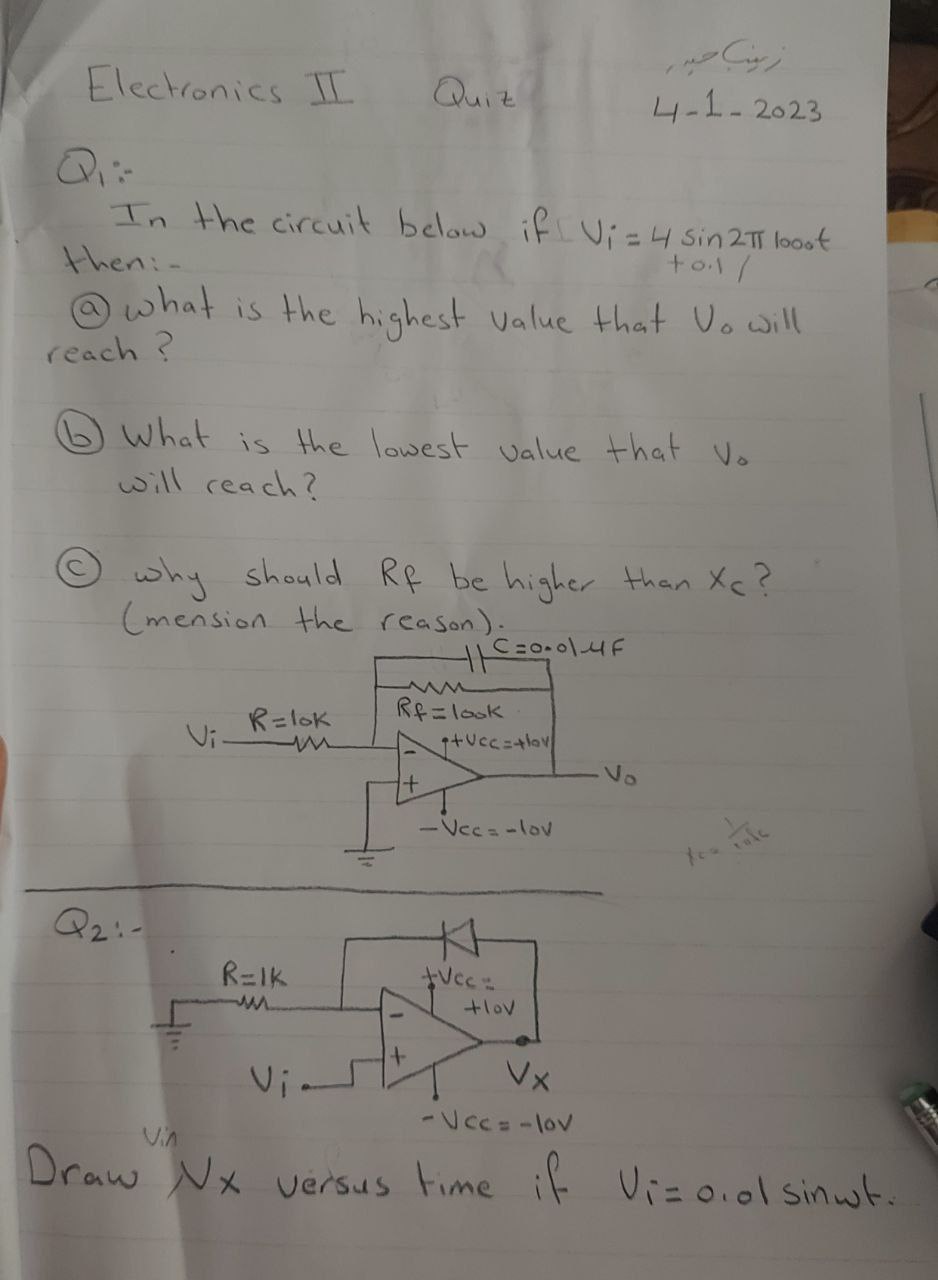 زينب حيدر
Electronics II Quiz
4-1-2023
Q1:-
In the circuit below if Vi = 4 sin 2π 1000t
+0.1
then:-
ⓐ what is the highest value that Vo will
reach?
ⓑ What is the lowest value that Vo
will reach?
ⓒ why should Rf be higher than Xc?
(mension the reason).
C=0.01μF
Rf=100K
R=10K
Vi
+Vcc=+10V
-
+
Vo
-Vcc=-10V
Xc=
Q2:-
R=1K
+Vcc=
+10V
-
+
Vi
Vx
-Vcc=-10V
Vin
Draw Vx versus time if Vi=0.01 sinwt.